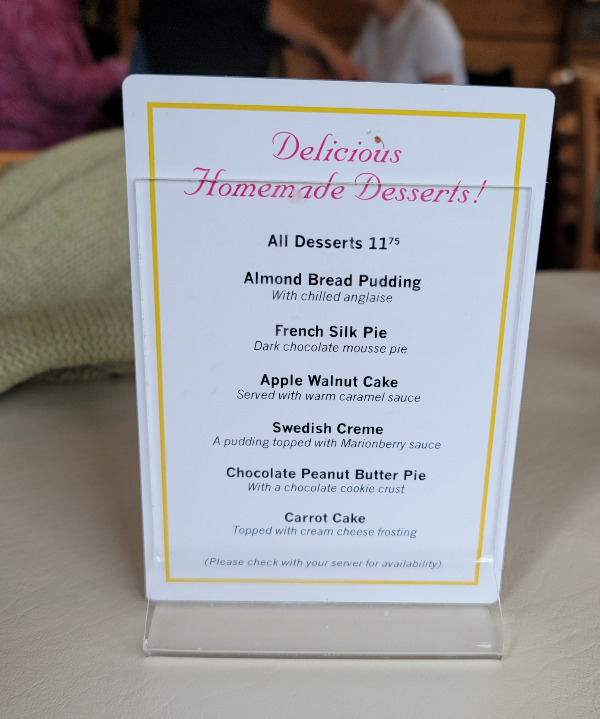 Delicious
Homemade Desserts!
All Desserts 11⁷⁵
Almond Bread Pudding
With chilled anglaise
French Silk Pie
Dark chocolate mousse pie
Apple Walnut Cake
Served with warm caramel sauce
Swedish Creme
A pudding topped with Marionberry sauce
Chocolate Peanut Butter Pie
With a chocolate cookie crust
Carrot Cake
Topped with cream cheese frosting
(Please check with your server for availability)